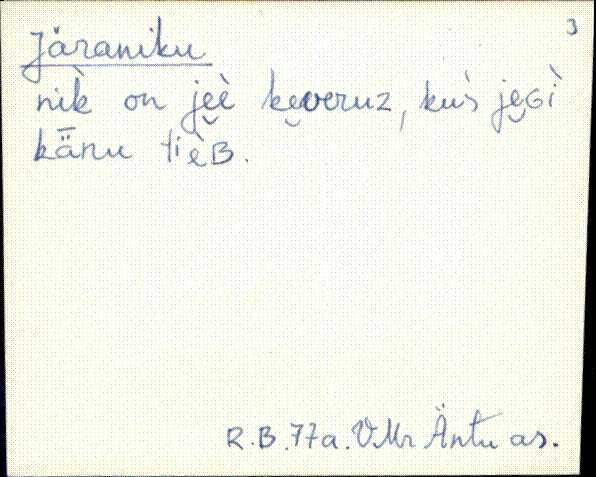 3
Järaniku
nìk on jẹè kẹveruz, kuś jẹGì
kǟnu tièB.
R.B.77a. VMr Äntu as.